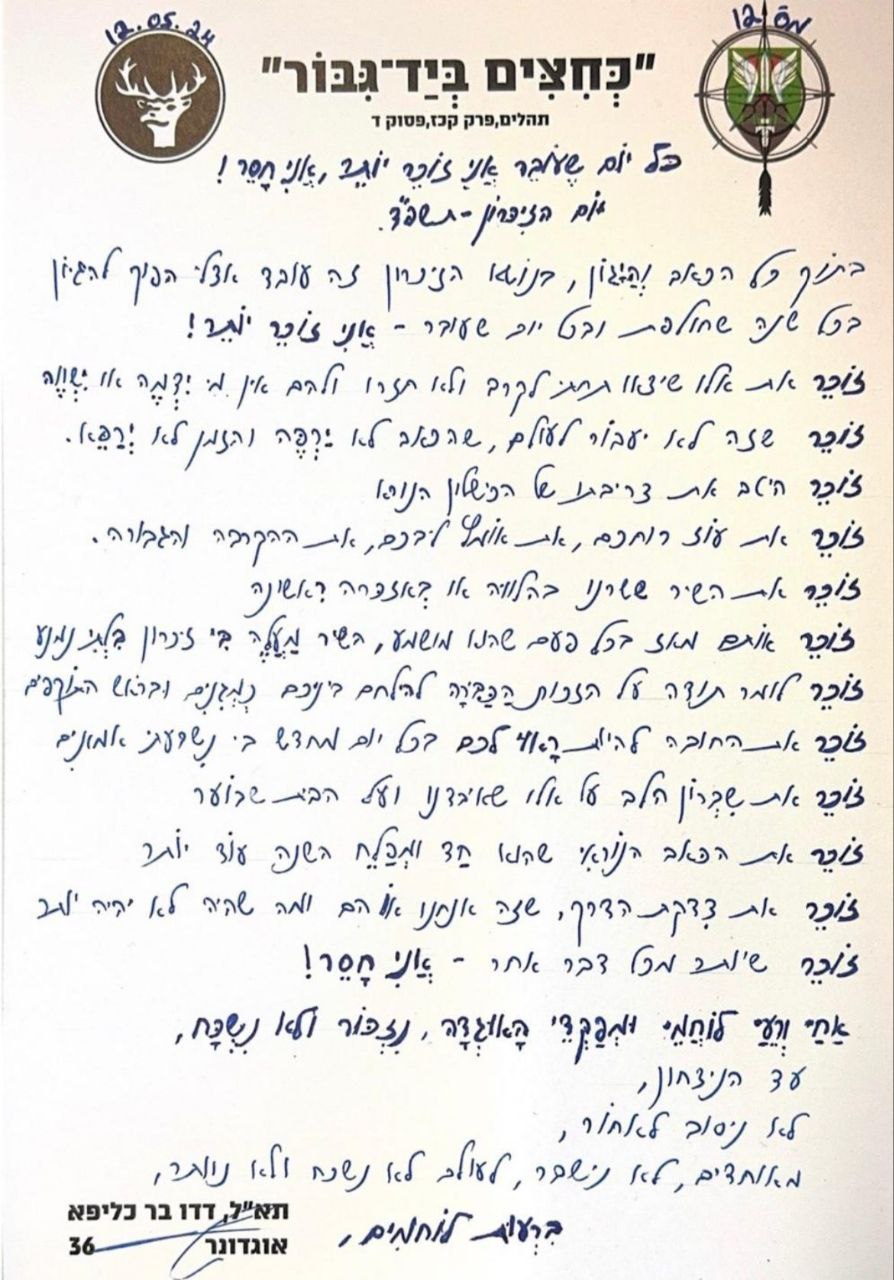 12.05.24
מס 12
"כְּחִצִּים בְּיַד־גִּבּוֹר"
תהלים,פרק קכז,פסוק ד
כל יוֹם שֶעוֹבֵר אֲנִי זוֹכֵר יוֹתֵר, אֲנִי חָסֵר!
יום הזיכרון - תשפ"ד.
בתוֹך כל הכאב וְהַיָּגוֹן, בנושא הזיכרון זה עובד אצלי הפוך להגיון
בכל שנה שחולפת ובכל יום שעובר - אֲנִי זוֹכֵר יוֹתֵר!
זוֹכֵר את אלו שיצאו תחתי לקרב ולא חזרו ולהם אין מי יִדְמֶה או יִשְׁוֶה
זוֹכֵר שזה לא יעבור לעולם, שהכאב לא יַרְפֶּה והזמן לא יְרַפֵּא.
זוֹכֵר היטב את צריבתו של הכישלון הנורא
זוֹכֵר את עוֹז רוחכם, את אומץ ליבכם, את ההקרבה והגבורה.
זוֹכֵר את השיר ששרנו בהלוויה או בְּאזכרה רִאשונה
זוֹכֵר אוֹתם מאז בכל פעם שהוא מושמע, השיר מַעֲלֶה בִּי זיכרון בִּלְתִּי נמנע
זוֹכֵר לומר תודה על הזכות הַכַּבִּירָה להילחם ביניכם כְּמְגִנִּים ובראש התוֹקפים
זוֹכֵר את החובה להיות רָאוּי לכם בכל יום מחדש בי נִשְׁבַּעתי אמונִים
זוֹכֵר את שִבְרוֹן הלב על אלו שאיבדנו ועל הבית שבוער
זוֹכֵר את הכאב הנוֹראִי שהוא חַד ומְפַלֵּחַ השנה עוֹד יוֹתר
זוֹכֵר את צִדקת הדרך, שזה אנחנו אוֹ הם ומה שהיה לא יהיה יותר
זוֹכֵר שיותר מכל דבר אחר - אֲנִי חָסֵר!
אַחַי וְרֵעַי לוֹחֲמֵי וּמְפַקְּדֵי הָאוּגְדָּה, נִזְכּוֹר ולא נִשְׁכַּח,
עד הניצחון,
לא ניסוב לאחוֹר,
מאוחדים, לא נישבר, לעולם לא נשכח ולא נוותר,
בְּרֵעוּת לוֹחֲמִים,
תא"ל, דדו בר כליפא
אוגדונר 36